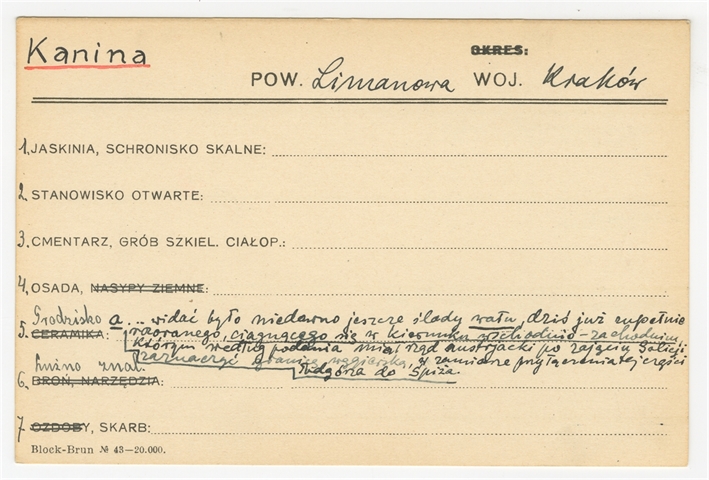 Kanina
OKRES:
POW. Limanowa WOJ. Kraków
1. JASKINIA, SCHRONISKO SKALNE:
2. STANOWISKO OTWARTE:
3. CMENTARZ, GRÓB SZKIEL. CIAŁOP.:
4. OSADA, NASYPY ZIEMNE:
Grodzisko a... widać było niedawno jeszcze ślady wału, dziś już zupełnie
5. CERAMIKA: zaoranego, ciągnącego się w kierunku wschodnio-zachodnim,
którym według podania miał rząd austrjacki po zajęciu Galicji
Luźno znal. zaznaczyć granicę węgierską, w zamiarze przyłączenia tej części
Podgórza do Spiża.
6. BROŃ, NARZĘDZIA:
7. OZDOBY, SKARB:
Block-Brun № 43—20.000.